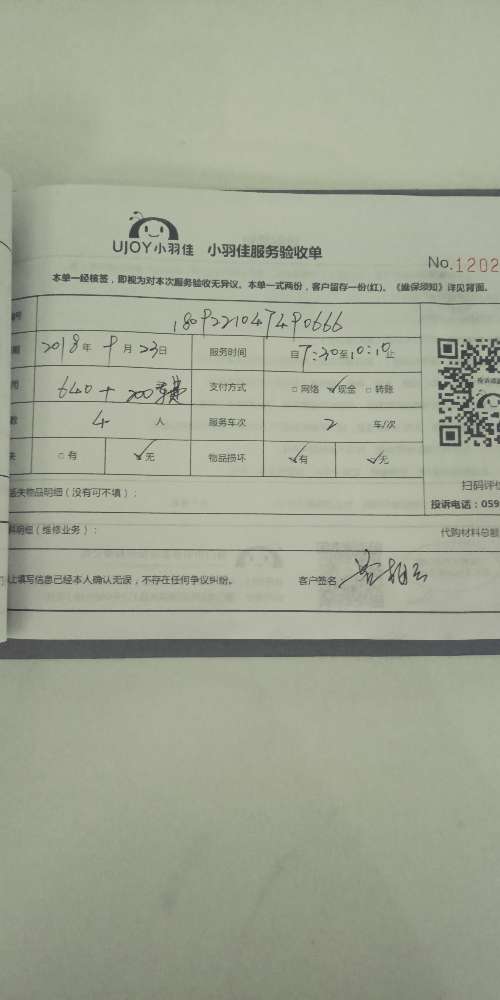 UJOY小羽佳 小羽佳服务验收单
No.1202
本单一经核签，即视为对本次服务验收无异议。本单一式两份，客户留存一份(红)。《维保须知》详见背面。
号 180922104790666
期 2018年 9月 23日 服务时间 自7:30至10:10止
用 640+200 支付方式 □网络 ✓现金 □转账
数 4 人 服务车次 2 车/次
失 □有 ✓无 物品损坏 ✓有 ✓无
扫码评价
丢失物品明细（没有可不填）：
投诉电话：059
料明细（维修业务）：
代购材料总额
上填写信息已经本人确认无误，不存在任何争议纠纷。 客户签名